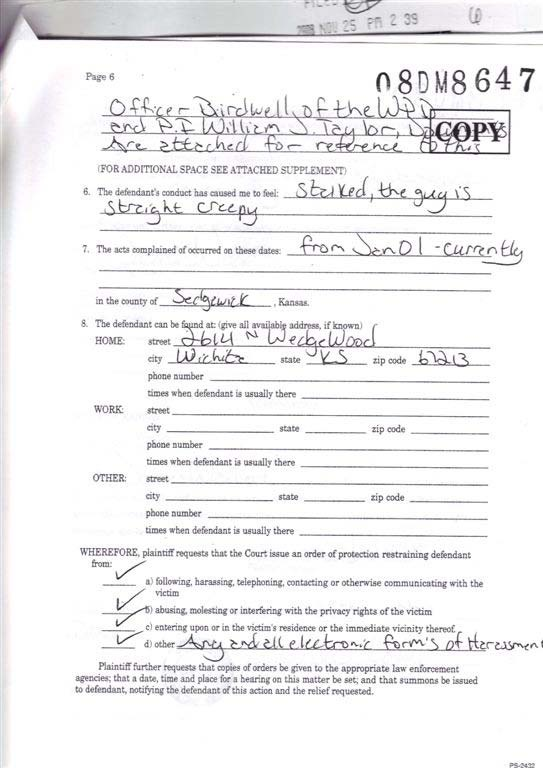 2008 NOV 25 PM 2 39
Page 6
08DM8647
Officer Birdwell, of the WPD
and P.I William J. Taylor,
COPY
Are attached for reference to this
(FOR ADDITIONAL SPACE SEE ATTACHED SUPPLEMENT)
6. The defendant's conduct has caused me to feel: Stalked, the guy is
straight creepy
7. The acts complained of occurred on these dates: from Jan 01 - currently
in the county of Sedgewick, Kansas.
8. The defendant can be found at: (give all available address, if known)
HOME: street 2614 N WedgeWood
city Wichita state KS zip code 67213
phone number
times when defendant is usually there
WORK: street
city state zip code
phone number
times when defendant is usually there
OTHER: street
city state zip code
phone number
times when defendant is usually there
WHEREFORE, plaintiff requests that the Court issue an order of protection restraining defendant
from:
a) following, harassing, telephoning, contacting or otherwise communicating with the
victim
b) abusing, molesting or interfering with the privacy rights of the victim
c) entering upon or in the victim's residence or the immediate vicinity thereof.
d) other Any and all electronic form's of Harassment
Plaintiff further requests that copies of orders be given to the appropriate law enforcement
agencies; that a date, time and place for a hearing on this matter be set; and that summons be issued
to defendant, notifying the defendant of this action and the relief requested.
PS-2432